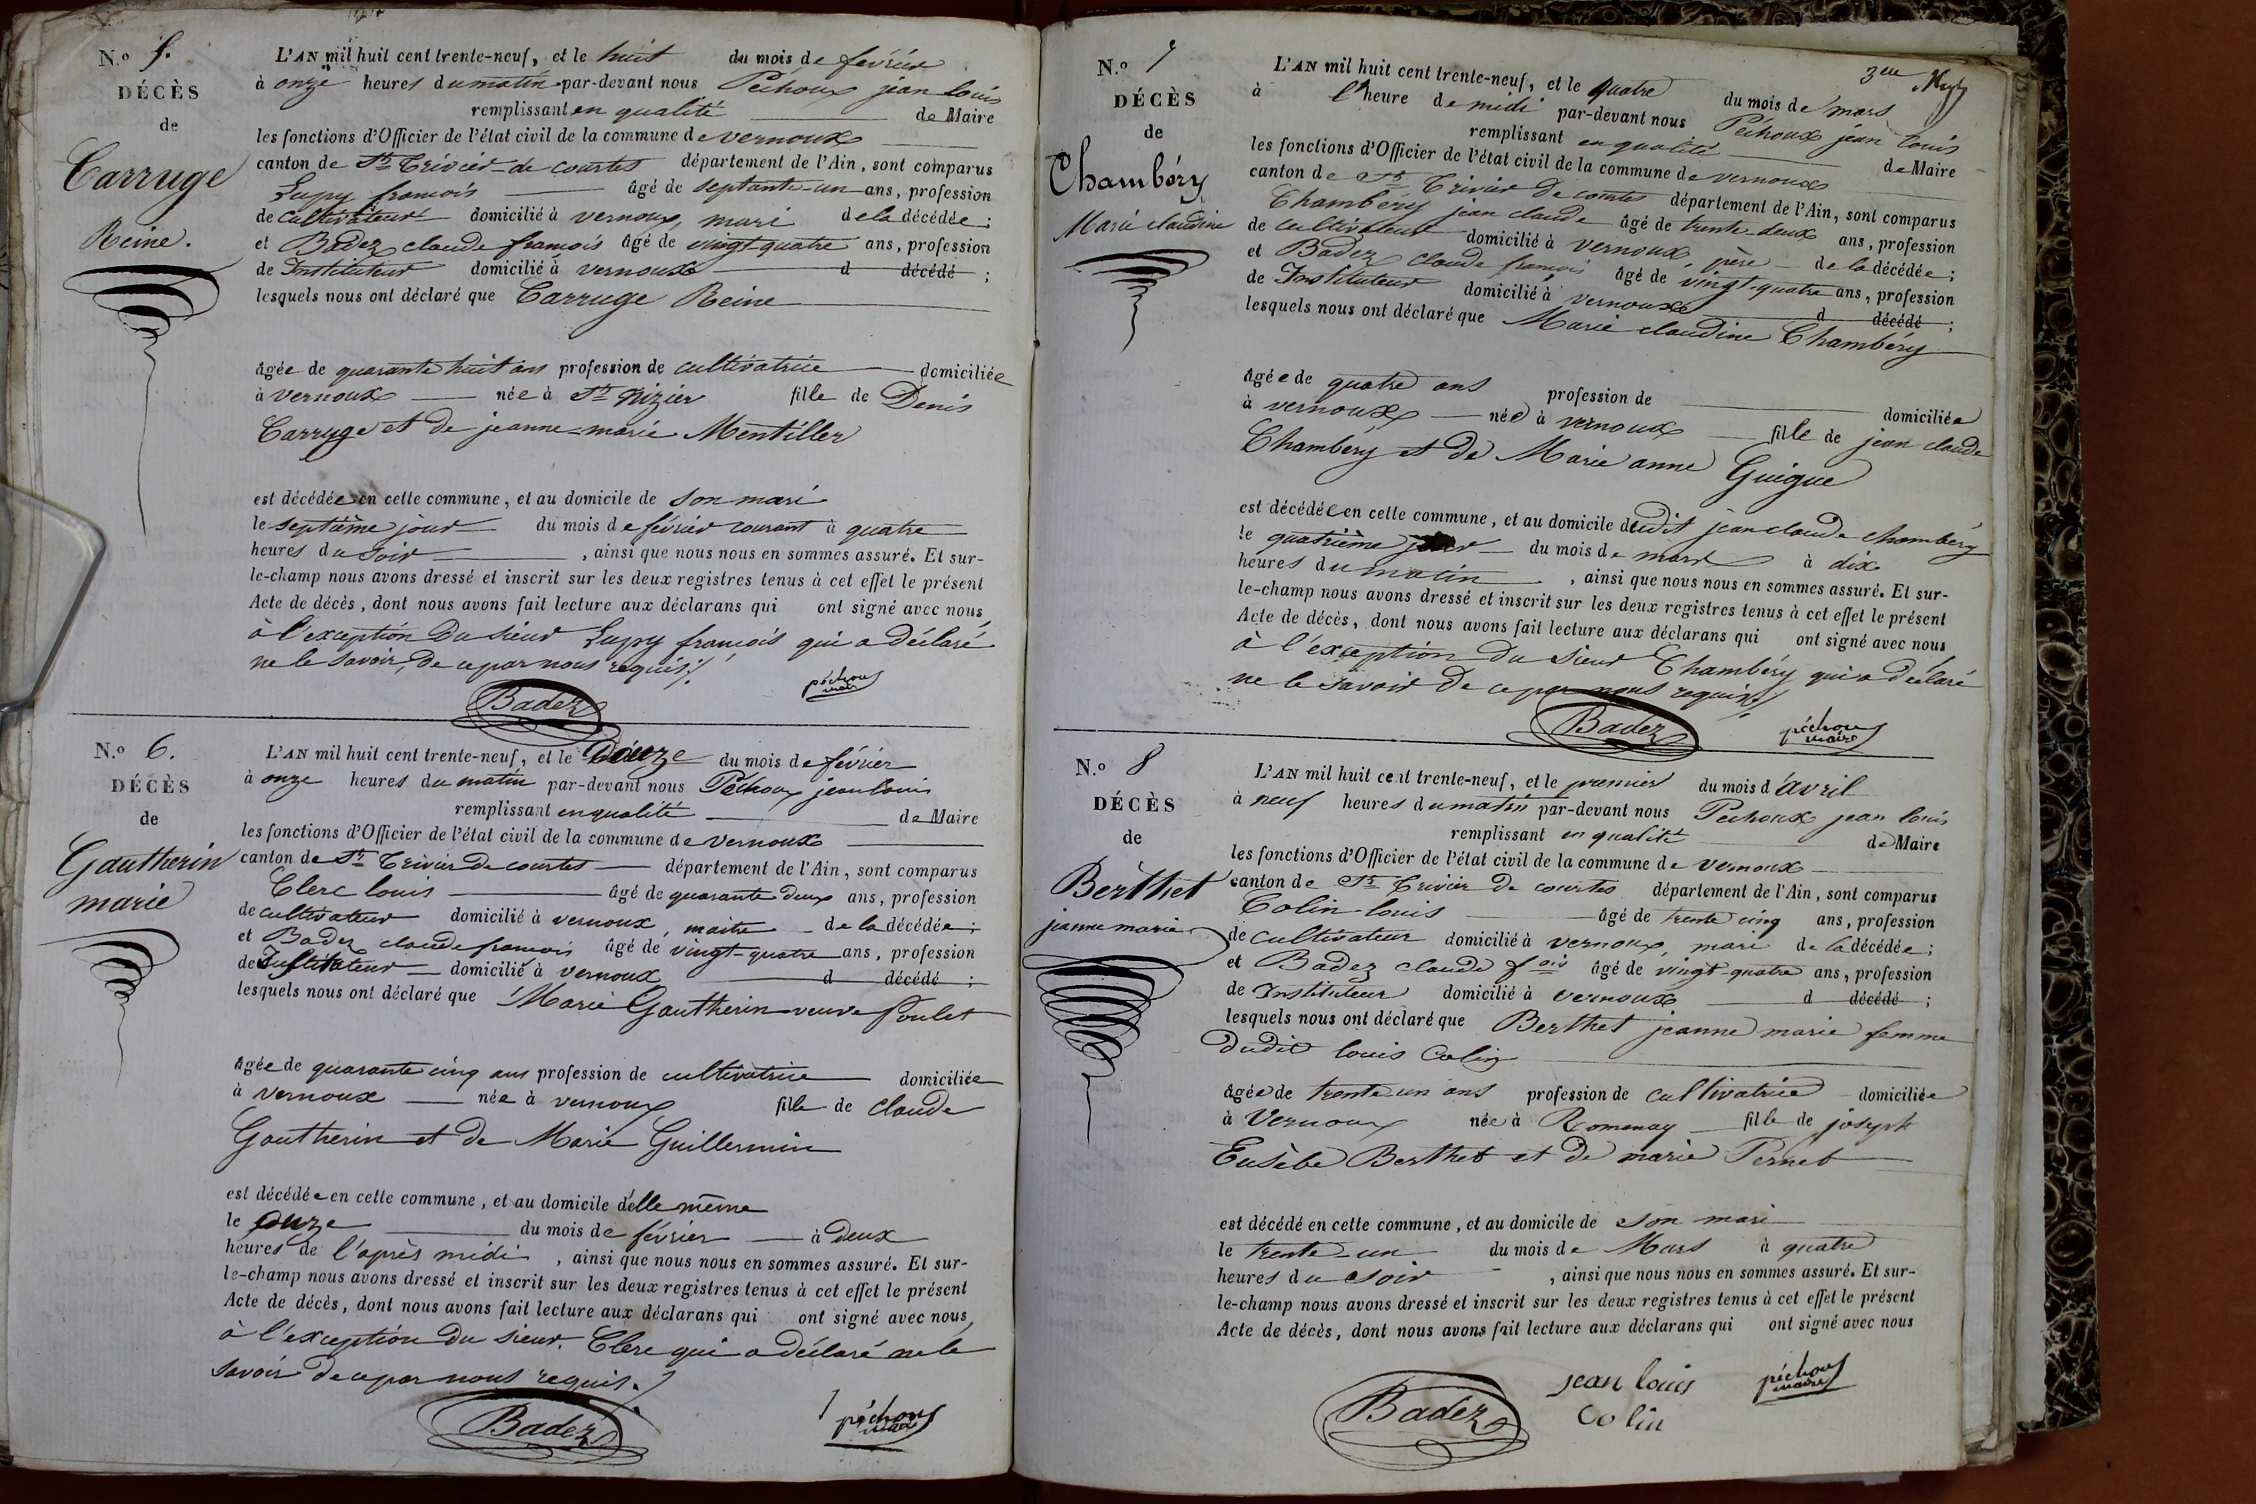 N.o 5.
DÉCÈS
de
Carruge
Reine.
L'AN mil huit cent trente-neuf, et le huit du mois de février
à onze heures du matin par-devant nous Péchoux jean louis
remplissant en qualité de Maire
les fonctions d'Officier de l'état civil de la commune de vernoux
canton de St Trivier de courtes département de l'Ain, sont comparus
Lupy francois âgé de septante-un ans, profession
de cultivateur domicilié à vernoux, mari de la décédée;
et Badez claude francois âgé de vingt-quatre ans, profession
de Instituteur domicilié à vernoux d décédé;
lesquels nous ont déclaré que Carruge Reine
âgée de quarante huit ans profession de cultivatrice domiciliée
à vernoux née à St Nizier fille de Denis
Carruge et de jeanne-marie Mentiller
est décédée en cette commune, et au domicile de son mari
le septième jour du mois de février courant à quatre
heures du soir, ainsi que nous nous en sommes assuré. Et sur-
le-champ nous avons dressé et inscrit sur les deux registres tenus à cet effet le présent
Acte de décès, dont nous avons fait lecture aux déclarans qui ont signé avec nous,
à l'exception du sieur Lupy francois qui a déclaré
ne le savoir, de ce par nous requis./.
Badez
péchoux
maire
N.o 6.
DÉCÈS
de
Gautherin
marie
L'AN mil huit cent trente-neuf, et le Douze du mois de février
à onze heures du matin par-devant nous Péchoux jean louis
remplissant en qualité de Maire
les fonctions d'Officier de l'état civil de la commune de vernoux
canton de St Trivier de courtes département de l'Ain, sont comparus
Clerc louis âgé de quarante deux ans, profession
de cultivateur domicilié à vernoux, maitre de la décédée;
et Badez claude francois âgé de vingt-quatre ans, profession
de Instituteur domicilié à vernoux d décédé;
lesquels nous ont déclaré que Marie Gautherin veuve Poulet
âgée de quarante cinq ans profession de cultivatrice domiciliée
à vernoux née à vernoux fille de claude
Gautherin et de Marie Guillermin
est décédée en cette commune, et au domicile d'elle même
le du mois de février à Deux
heures de l'après midi, ainsi que nous nous en sommes assuré. Et sur-
le-champ nous avons dressé et inscrit sur les deux registres tenus à cet effet le présent
Acte de décès, dont nous avons fait lecture aux déclarans qui ont signé avec nous,
à l'exception du sieur Clerc qui a déclaré ne le
savoir de ce par nous requis./.
Badez
péchoux
maire
3me
N.o 7
DÉCÈS
de
Chambéry
Marie claudine
L'AN mil huit cent trente-neuf, et le quatre du mois de mars
à l'heure de midi par-devant nous Péchoux jean louis
remplissant en qualité de Maire
les fonctions d'Officier de l'état civil de la commune de vernoux
canton de St Trivier de courtes département de l'Ain, sont comparus
Chambéry jean claude âgé de trente deux ans, profession
de cultivateur domicilié à vernoux, père de la décédée;
et Badez claude francois âgé de vingt-quatre ans, profession
de Instituteur domicilié à vernoux d décédé;
lesquels nous ont déclaré que Marie claudine Chambéry
âgée de quatre ans profession de domiciliée
à vernoux née à vernoux fille de jean claude
Chambéry et de Marie anne Guigue
est décédée en cette commune, et au domicile dudit jean claude chambéry
le quatrième jour du mois de mars à dix
heures du matin, ainsi que nous nous en sommes assuré. Et sur-
le-champ nous avons dressé et inscrit sur les deux registres tenus à cet effet le présent
Acte de décès, dont nous avons fait lecture aux déclarans qui ont signé avec nous,
à l'exception du sieur Chambéry qui a déclaré
ne le savoir de ce par nous requis./.
Badez
péchoux
maire
N.o 8
DÉCÈS
de
Berthet
jeanne marie
L'AN mil huit cent trente-neuf, et le premier du mois d'avril
à neuf heures du matin par-devant nous Péchoux jean louis
remplissant en qualité de Maire
les fonctions d'Officier de l'état civil de la commune de vernoux
canton de St Trivier de courtes département de l'Ain, sont comparus
Colin louis âgé de trente cinq ans, profession
de cultivateur domicilié à vernoux, mari de la décédée;
et Badez claude fois âgé de vingt-quatre ans, profession
de Instituteur domicilié à vernoux d décédé;
lesquels nous ont déclaré que Berthet jeanne marie femme
dudit louis Colin
âgée de trente un ans profession de cultivatrice domiciliée
à Vernoux née à Romenay fille de joseph
Eusèbe Berthet et de marie Pernet
est décédé en cette commune, et au domicile de son mari
le trente-un du mois de Mars à quatre
heures du soir, ainsi que nous nous en sommes assuré. Et sur-
le-champ nous avons dressé et inscrit sur les deux registres tenus à cet effet le présent
Acte de décès, dont nous avons fait lecture aux déclarans qui ont signé avec nous
Badez
jean louis
colin
péchoux
maire